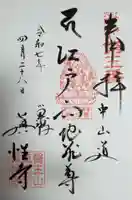 奉拝
中山道
江戸六地蔵尊
巣鴨
真性寺
令和七年
四月二十八日